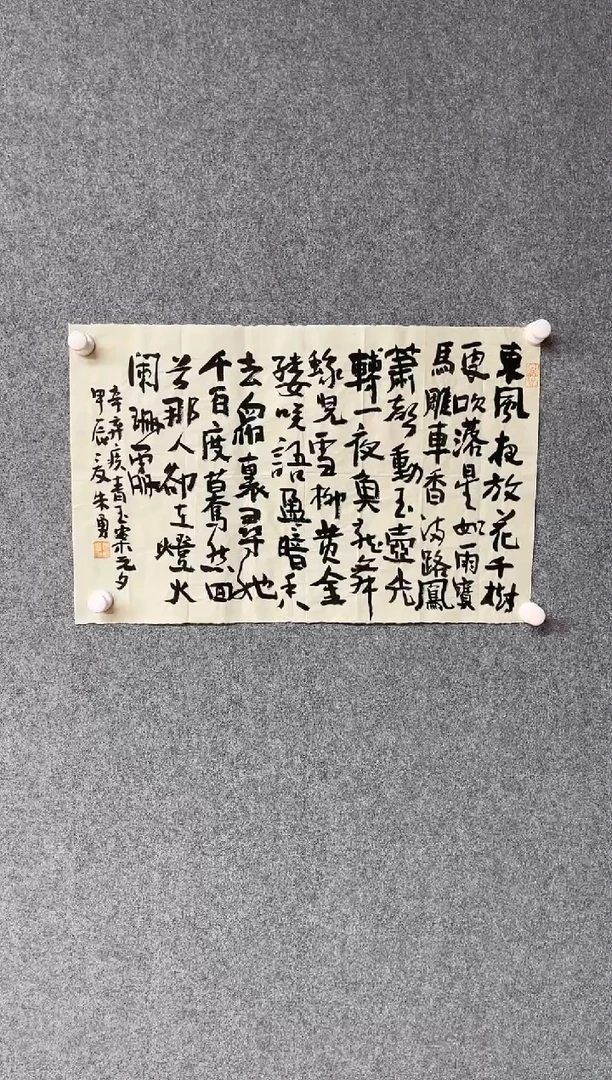 東風夜放花千樹
更吹落星如雨寶
馬雕車香滿路鳳
蕭聲動玉壺光
轉一夜魚龍舞
蛾兒雪柳黄金
縷咲語盈暗香
去衆裏尋他
千百度驀然回
首那人卻在燈火
闌珊處
辛弃疾青玉案元夕
甲辰夏朱勇